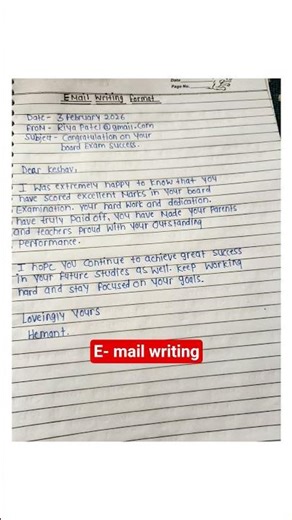 Date
Page No.
EMail Writing Format
Date - 3 February 2026
From - Riya Patel@gmail.com
Subject - Congratulation on Your
board Exam Success.
Dear Keshav,
I Was extremely happy to know that you
have Scored excellent Marks in Your board
Examination. Your hard Work and dedication.
have truly Paid off, You have Made Your Parents
and teachers Proud With Your Outstanding
Performance.
I hope You Continue to achieve great Success
in Your Future Studies as Well. Keep Working
hard and Stay Focused on Your goals.
Loveingly Yours
Hemant.
E- mail writing